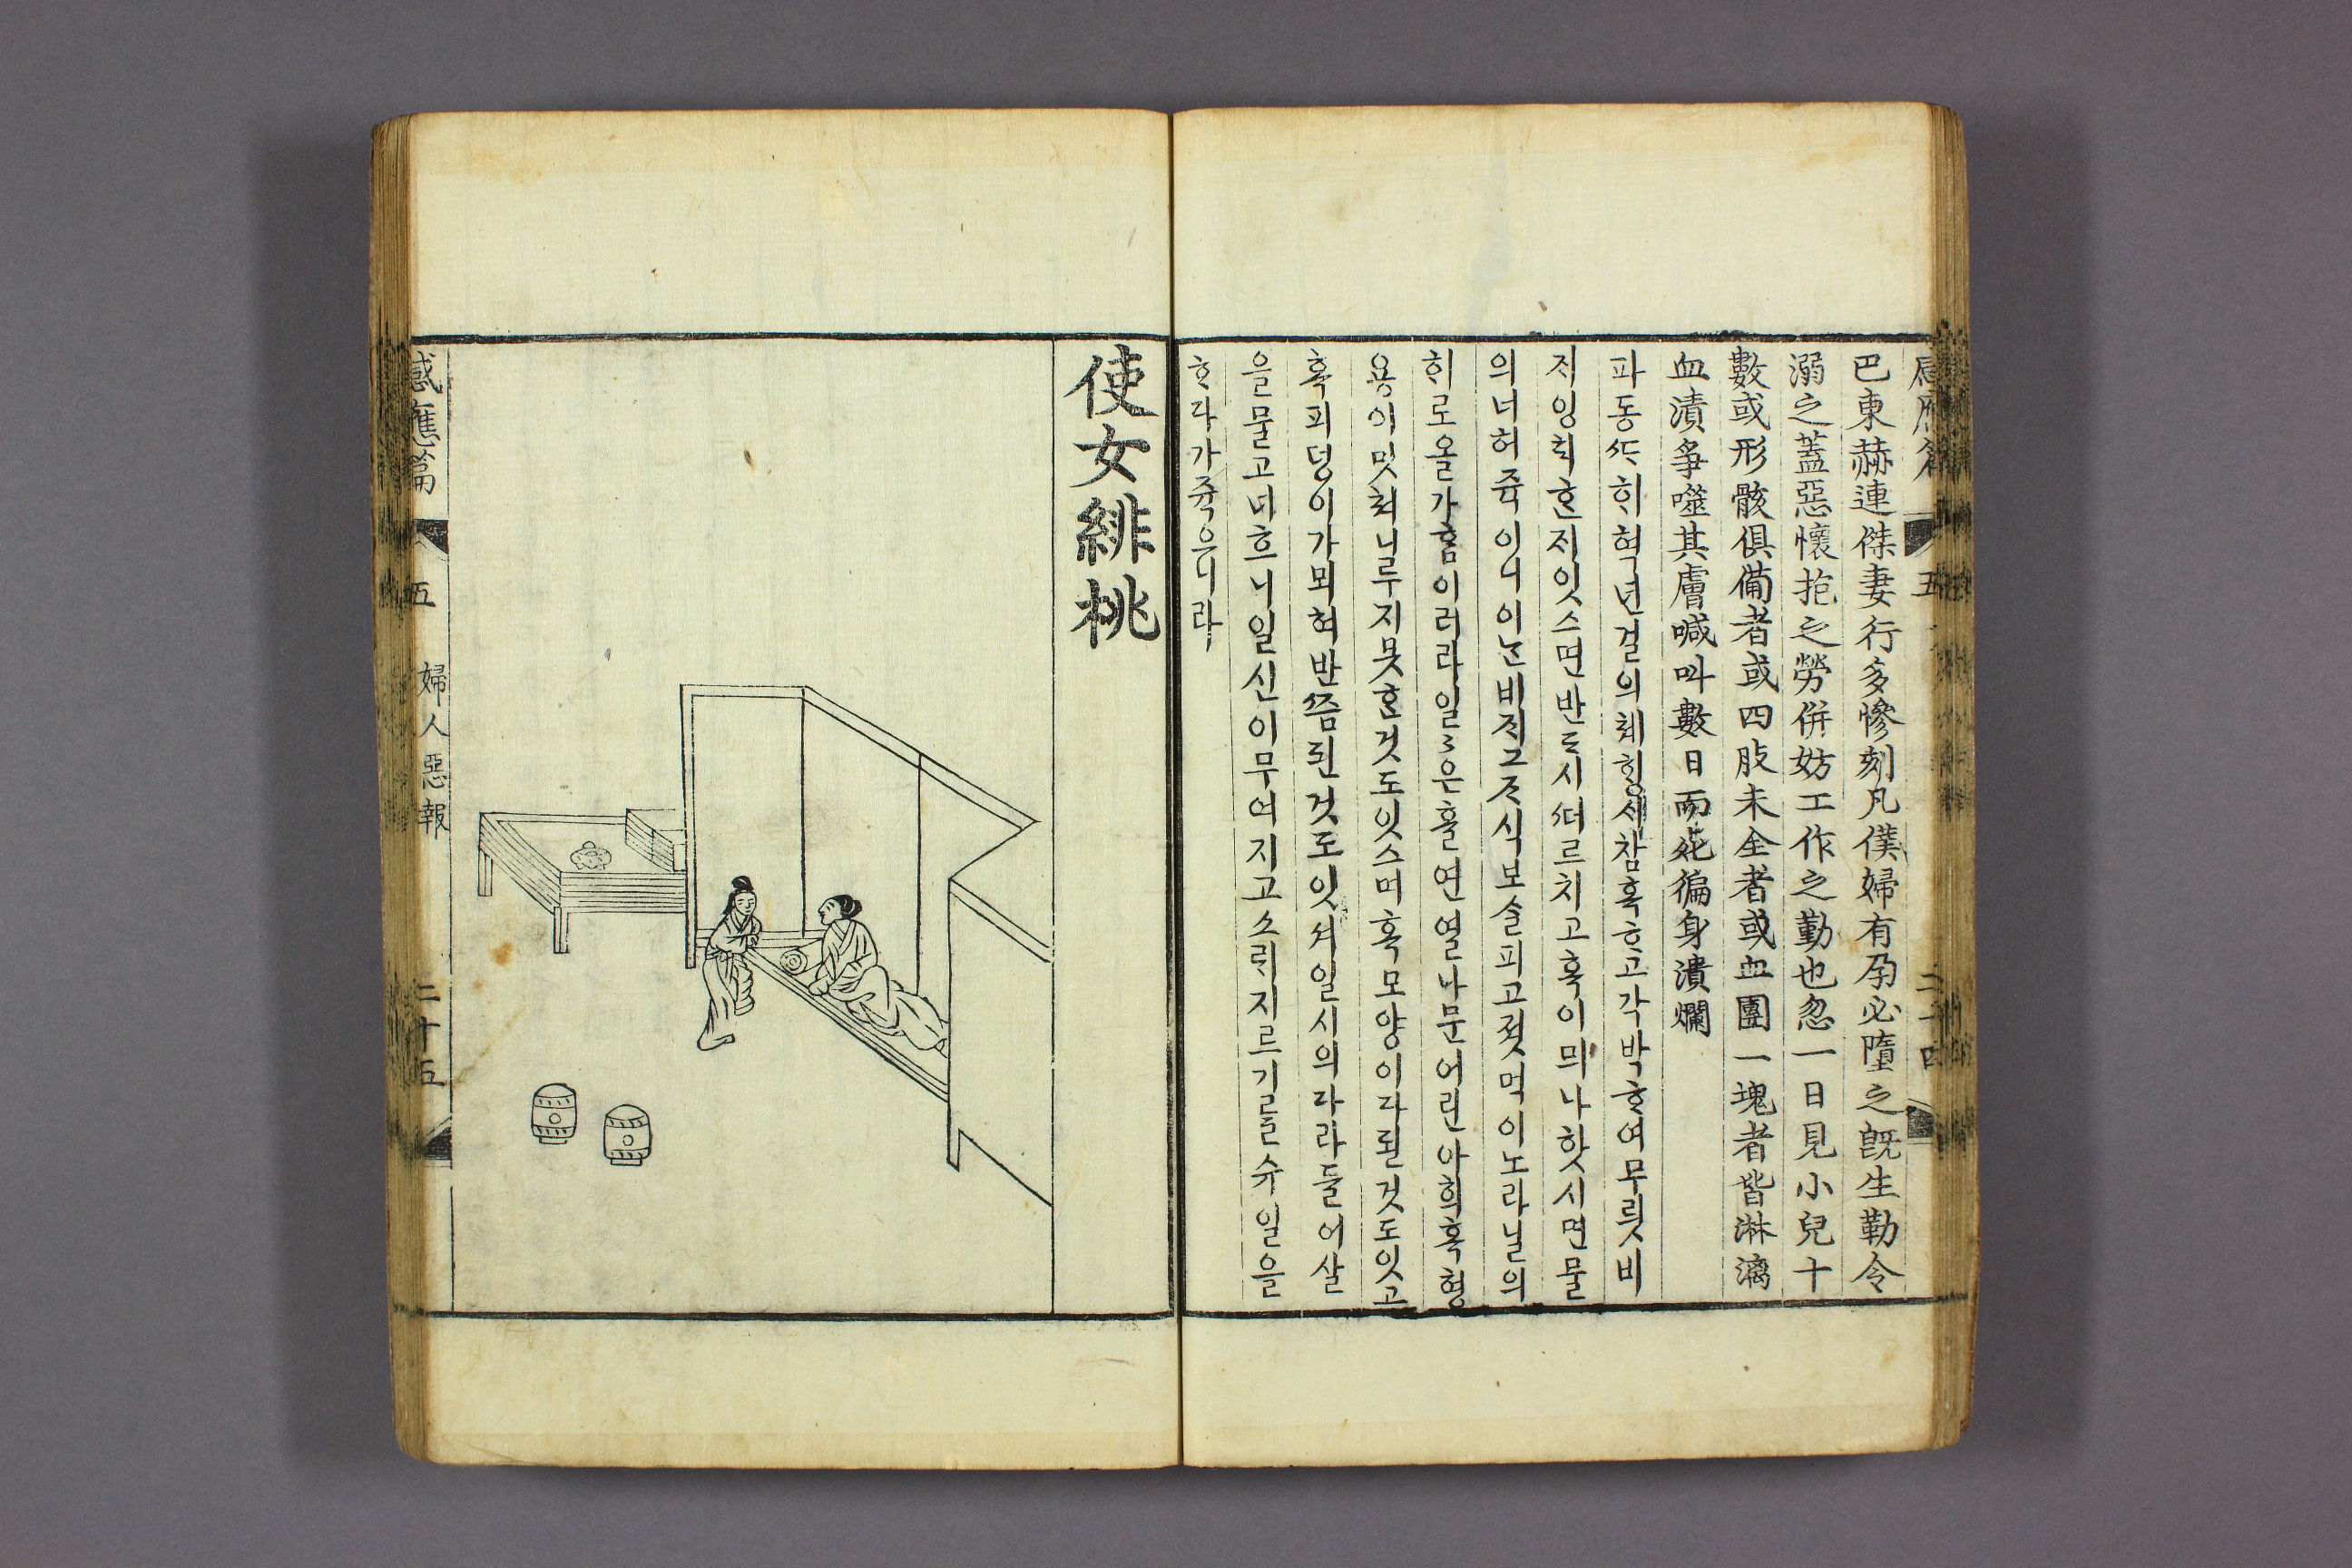 感應篇 五 二十四
巴東赫連傑妻行多慘刻凡僕婦有孕必墮之旣生勒令
溺之蓋惡懷抱之勞併妨工作之勤也忽一日見小兒十
數或形骸俱備者或四肢未全者或血團一塊者皆淋漓
血漬爭噬其膚喊叫數日而死徧身潰爛
파동ᄯᆞ히혁년걸의쳬ᄒᆡᆼ셰참혹ᄒᆞ고각박ᄒᆞ여무릣비
지잉ᄐᆡᄒᆞᆫ지잇스면반ᄃᆞ시ᄯᅥ르치고혹이믜나핫시면물
의너허쥭이니이ᄂᆞᆫ비지그ᄌᆞ식보슬피고졋먹이노라닐의
ᄒᆡ로올가ᄒᆞᆷ이러라일〻은홀연열나문어린아희혹형
용이밋쳐니루지못ᄒᆞᆫ것도잇스며혹모양이다된것도잇고
혹피덩이가되혀반ᄶᅳᆷ된것도잇셔일시의다라들어살
을물고너흐니일신이무여지고소ᄅᆡ지르기를슈일을
ᄒᆞ다가쥭으니라
使女緋桃
感應篇 五 婦人惡報 二十五